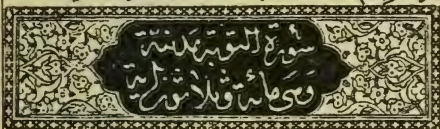 سورة التوبة مدنية
وهى مائة وثلاثون اية